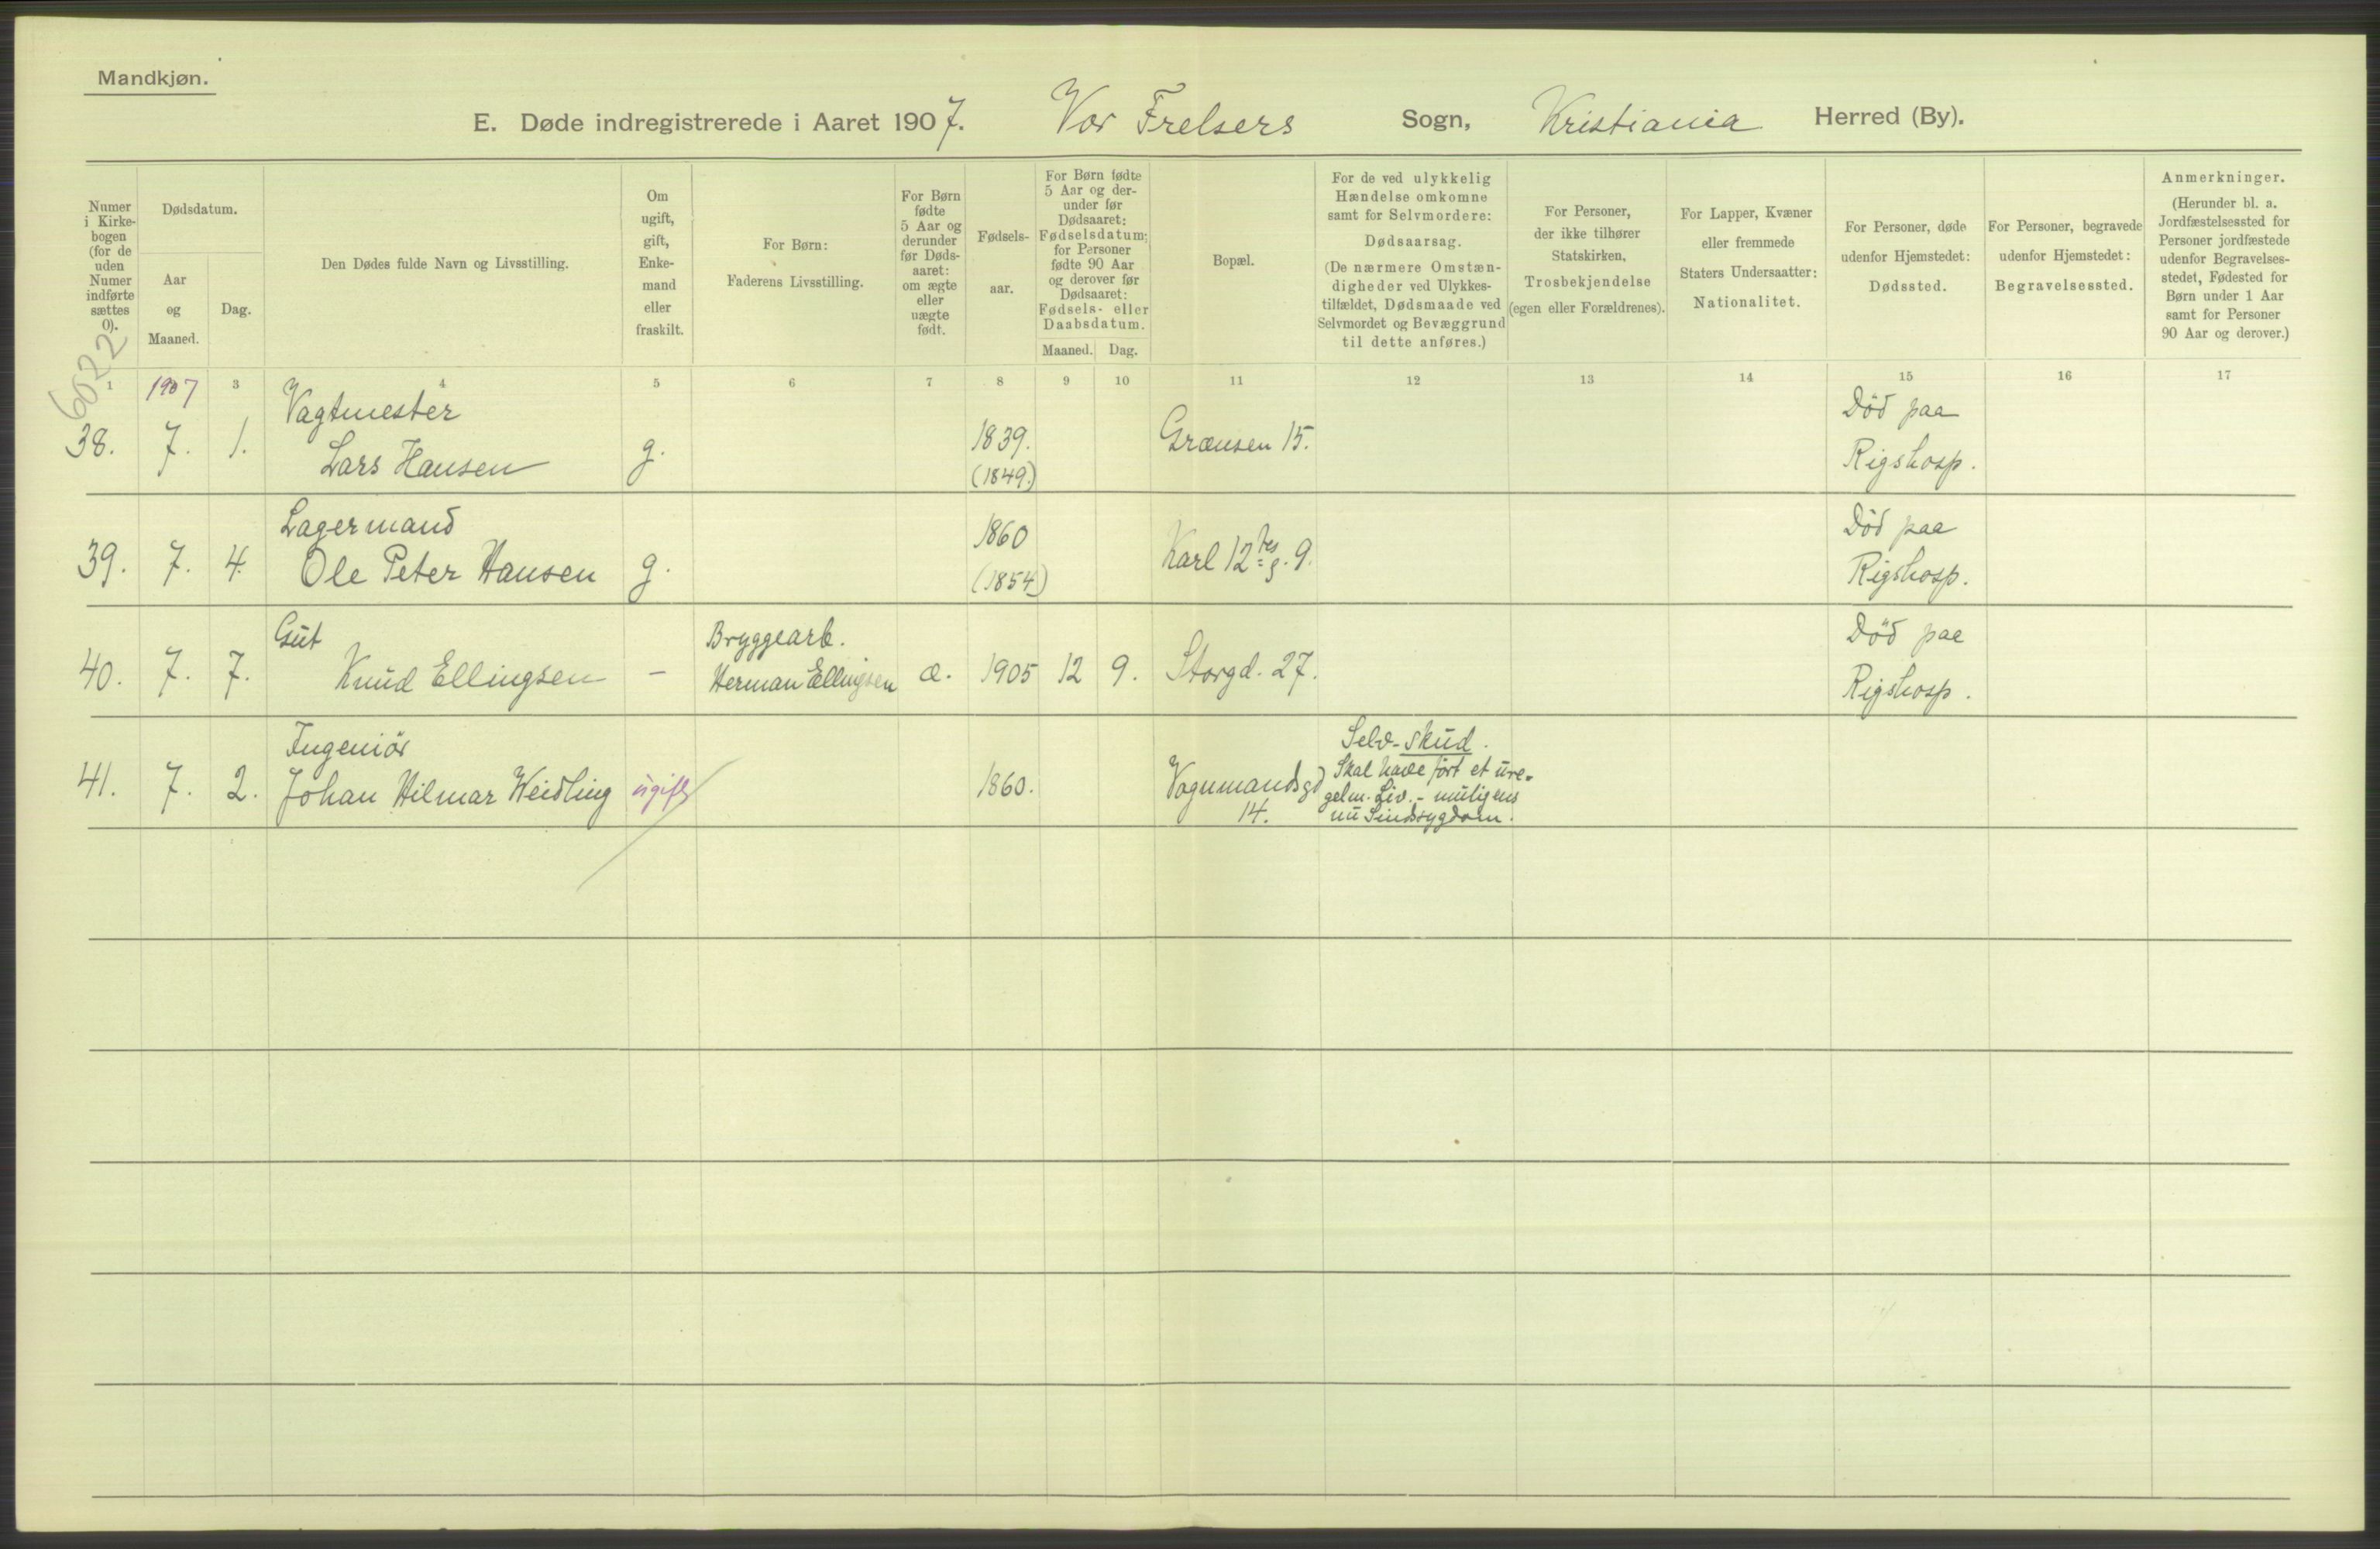 Mandkjøn.
E. Døde indregistrerede i Aaret 1907. Vor Frelsers Sogn, Kristiania Herred (By).
Numer
i Kirke-
bogen
(for de
uden
Numer
indførte
sættes
0).
Dødsdatum.
Aar
og
Maaned.
Dag.
Den Dødes fulde Navn og Livsstilling.
Om
ugift,
gift,
Enke-
mand
eller
fraskilt.
For Børn:
Faderens Livsstilling.
For Børn
fødte
5 Aar og
derunder
før Døds-
aaret:
om ægte
eller
uægte
født.
Fødsels-
aar.
For Børn fødte
5 Aar og der-
under før
Dødsaaret:
Fødselsdatum;
for Personer
fødte 90 Aar
og derover før
Dødsaaret:
Fødsels- eller
Daabsdatum.
Maaned. Dag.
Bopæl.
For de ved ulykkelig
Hændelse omkomne
samt for Selvmordere:
Dødsaarsag.
(De nærmere Omstæn-
digheder ved Ulykkes-
tilfældet, Dødsmaade ved
Selvmordet og Bevæggrund
til dette anføres.)
For Personer,
der ikke tilhører
Statskirken,
Trosbekjendelse
(egen eller Forældrenes).
For Lapper, Kvæner
eller fremmede
Staters Undersaatter:
Nationalitet.
For Personer, døde
udenfor Hjemstedet:
Dødssted.
For Personer, begravede
udenfor Hjemstedet:
Begravelsessted.
Anmerkninger.
(Herunder bl. a.
Jordfæstelsessted for
Personer jordfæstede
udenfor Begravelses-
stedet, Fødested for
Børn under 1 Aar
samt for Personer
90 Aar og derover.)
6022
1 1907 3 4 5 6 7 8 9 10 11 12 13 14 15 16 17
Vagtmester Død paa
38. 7. 1. Lars Hansen g. 1839. Grænsen 15. Rigshosp.
(1849.)
Lagermand 1860 Død paa
39. 7. 4. Ole Peter Hansen g. (1854) Karl 12tes g. 9. Rigshosp.
Gut Bryggearb. Død paa
40. 7. 7. Knud Ellingsen – Herman Ellingsen æ. 1905 12 9. Storgd. 27. Rigshosp.
Ingeniör Selv-skud.
41. 7. 2. Johan Hilmar Weidling ugift 1860. Vognmandsgd Skal have fört et ure-
14. gelm. Liv. - muligens
nu Sindssygdom.